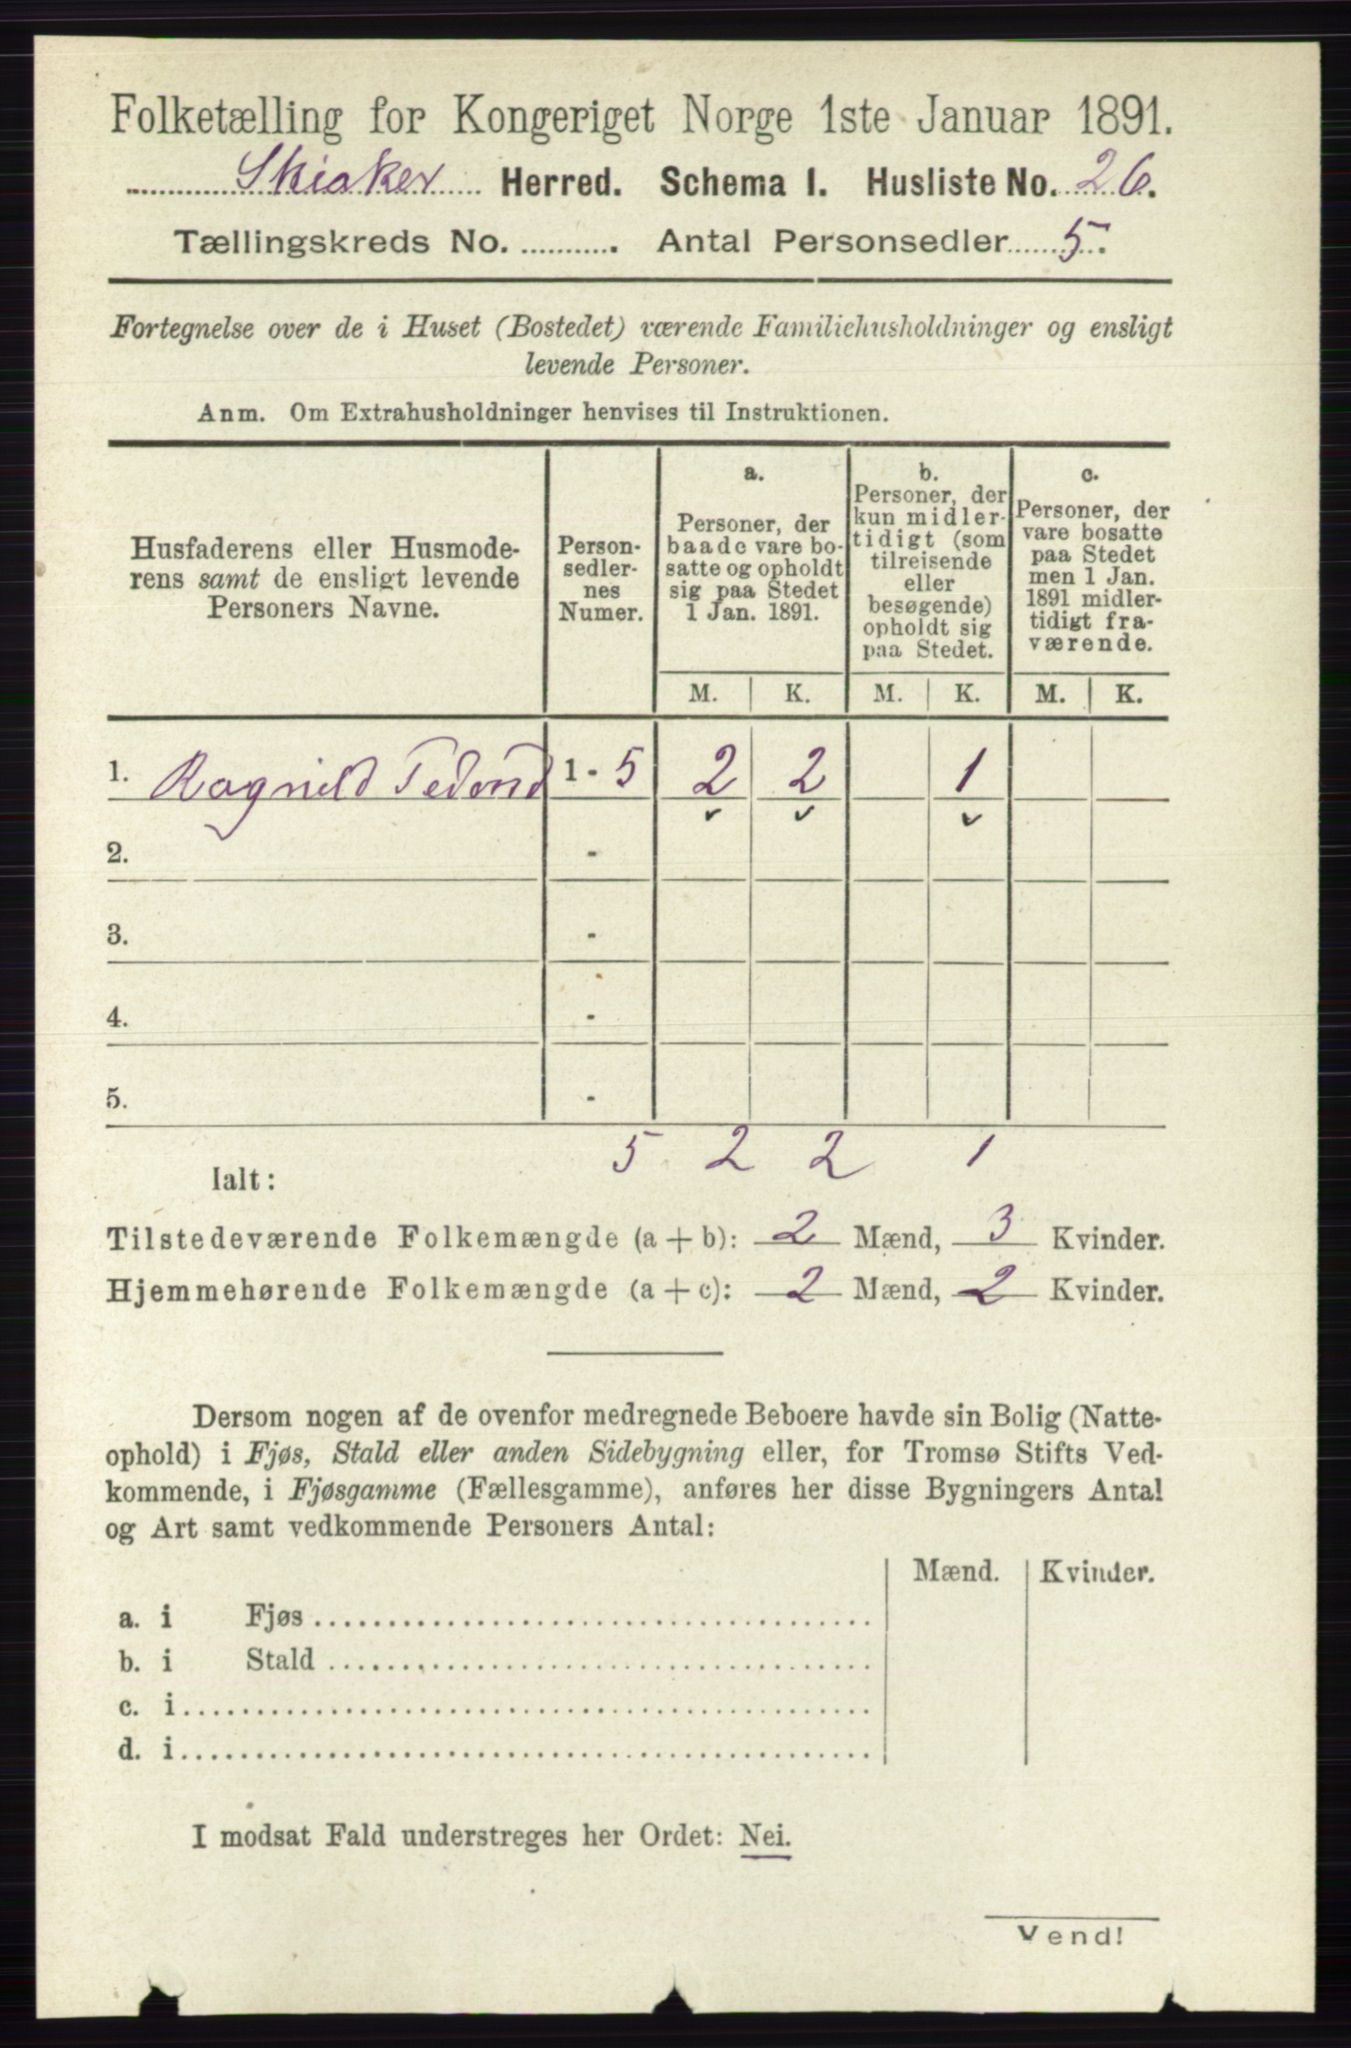 Folketælling for Kongeriget Norge 1ste Januar 1891.
Skiaker Herred. Schema I. Husliste No. 26.
Tællingskreds No. ............ Antal Personsedler 5.
Fortegnelse over de i Huset (Bostedet) værende Familiehusholdninger og ensligt
levende Personer.
Anm. Om Extrahusholdninger henvises til Instruktionen.
Husfaderens eller Husmode-
rens samt de ensligt levende
Personers Navne.
Person-
sedler-
nes
Numer.
a.
Personer, der
baade vare bo-
satte og opholdt
sig paa Stedet
1 Jan. 1891.
b.
Personer, der
kun midler-
tidigt (som
tilreisende
eller
besøgende)
opholdt sig
paa Stedet.
c.
Personer, der
vare bosatte
paa Stedet
men 1 Jan.
1891 midler-
tidigt fra-
værende.
M. K. M. K. M. K.
1. Ragnild 1 - 5 2 2 1
2. -
3. -
4. -
5. -
Ialt: 5 2 2 1
Tilstedeværende Folkemængde (a + b): 2 Mænd, 3 Kvinder.
Hjemmehørende Folkemængde (a + c): 2 Mænd, 2 Kvinder.
Dersom nogen af de ovenfor medregnede Beboere havde sin Bolig (Natte-
ophold) i Fjøs, Stald eller anden Sidebygning eller, for Tromsø Stifts Ved-
kommende, i Fjøsgamme (Fællesgamme), anføres her disse Bygningers Antal
og Art samt vedkommende Personers Antal:
Mænd. Kvinder.
a. i Fjøs
b. i Stald
c. i
d. i
I modsat Fald understreges her Ordet: Nei.
Vend!